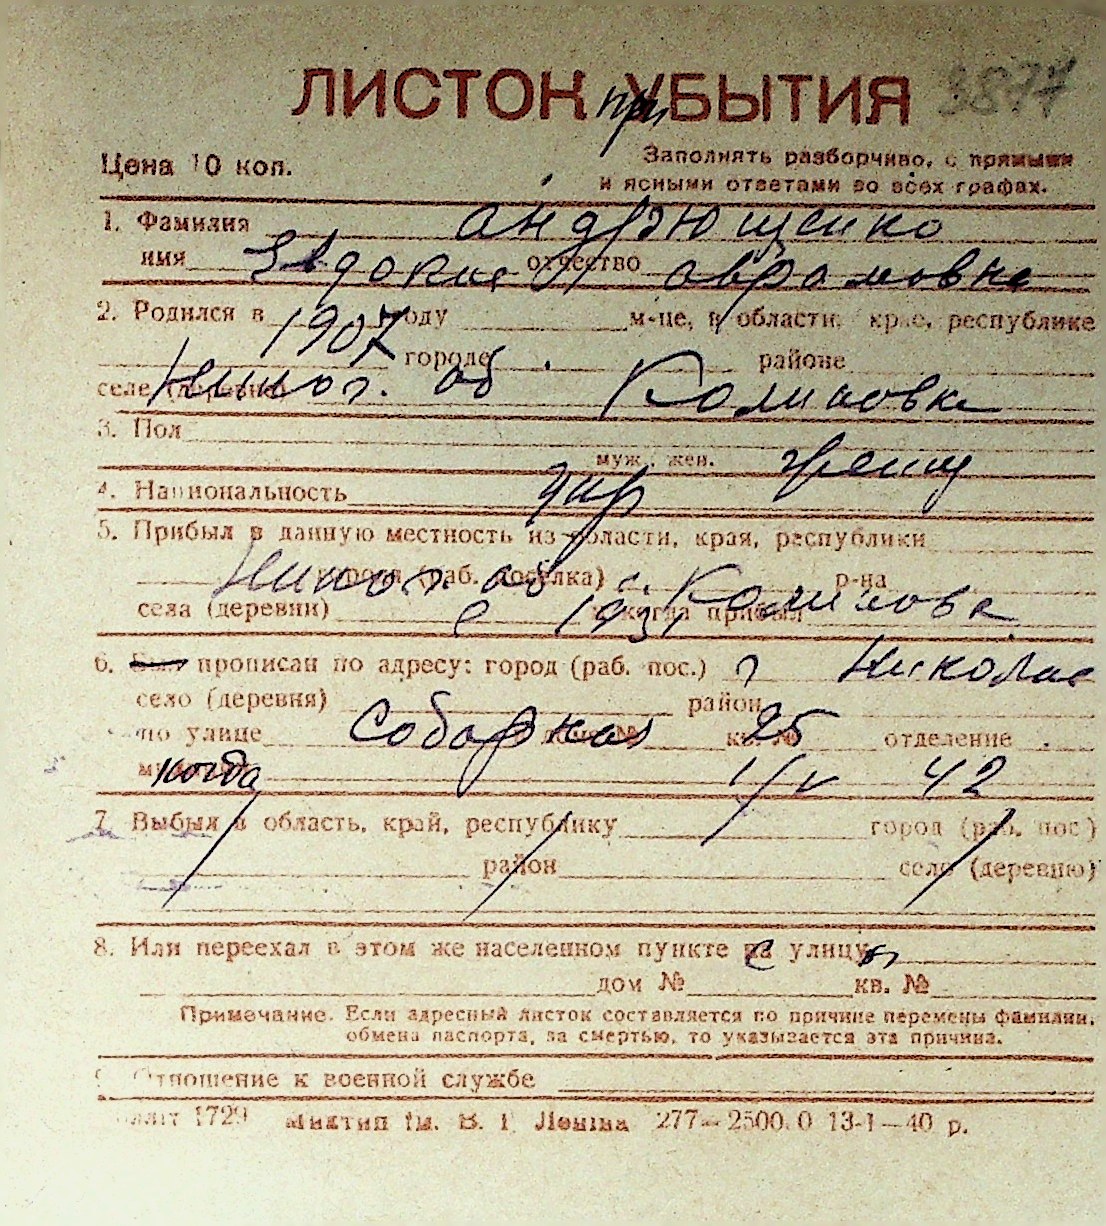 ЛИСТОК при УБЫТИЯ 3877
Цена 10 коп.
Заполнять разборчиво, с прямыми
и ясными ответами во всех графах.
1. Фамилия Андрющенко
имя Евдокия отчество Аврамовна
2. Родился в 1907 году м-це, в области, крае, республике
городе районе
селе (деревне) Никол. об Калиновка
3. Пол
муж., жен. женщ
4. Национальность укр
5. Прибыл в данную местность из области, края, республики
города (раб. поселка) р-на
Никол об с. Калиновка
села (деревни) с 1931 когда прибыл
6. Был прописан по адресу: город (раб. пос.) г Николае
село (деревня) район
по улице Соборная дом № кв. № 25 отделение
когда 1/V 42
7. Выбыл в область, край, республику город (раб. пос.)
район село (деревню)
8. Или переехал в этом же населенном пункте на улицу
дом № кв. №
Примечание. Если адресный листок составляется по причине перемены фамилии,
обмена паспорта, за смертью, то указывается эта причина.
9. Отношение к военной службе
1729 Миктип Ім. В. І. Леніна 277—2500.0 13-1—40 р.